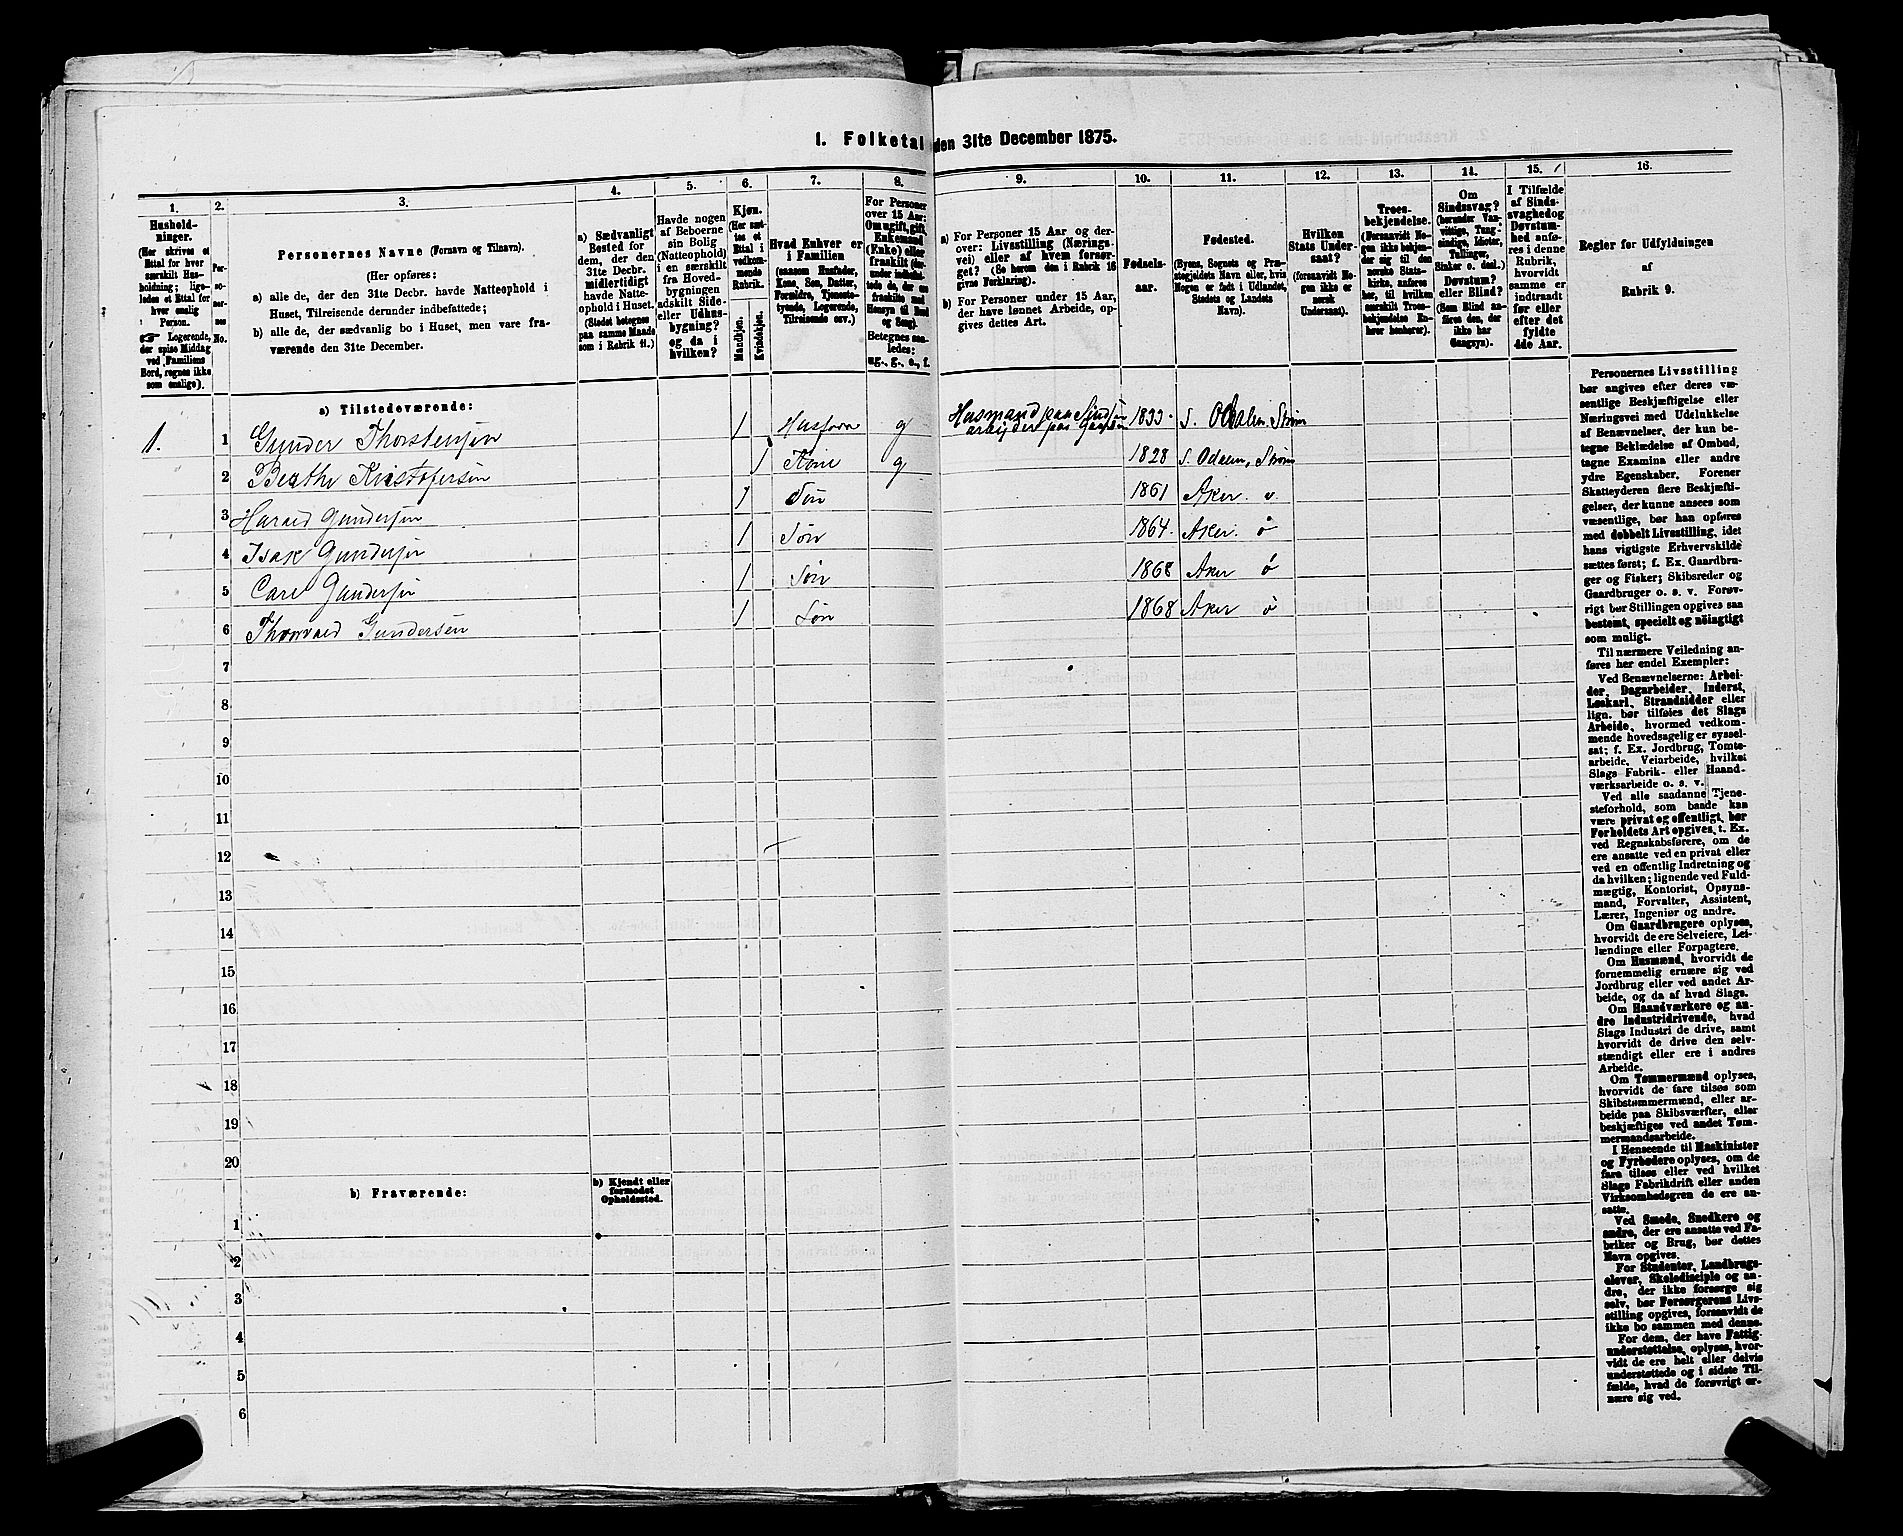 1. Folketal den 31te December 1875.
1.
Hushold-
ninger.
(Her skrives et
Ettal for hver
særskilt Hus-
holdning; lige-
ledes et Ettal for
hver enslig
Person.
Logerende,
der spise Middag
ved Familiens
Bord, regnes ikke
som enslige).
2.
Per-
so-
ner-
nes
No.
3.
Personernes Navne (Fornavn og Tilnavn).
(Her opføres:
a) alle de, der den 31te Decbr. havde Natteophold i
Huset, Tilreisende derunder indbefattede;
b) alle de, der sædvanlig bo i Huset, men vare fra-
værende den 31te December.
4.
a) Sædvanligt
Bosted for
dem, der den
31te Decbr.
midlertidigt
havde Natte-
ophold i Huset.
(Stedet betegnes
paa samme Maade
som i Rubrik 11.)
5.
Havde nogen
af Beboerne
sin Bolig
(Natteophold)
i en særskilt
fra Hoved-
bygningen
adskilt Side-
eller Udhus-
bygning?
og da i
hvilken?
6.
Kjøn.
(Her sæt-
tes et
Ettal i
vedkom-
mende
Rubrik.
Mandkjøn.
Kvindekjøn.
7.
Hvad Enhver er
i Familien
(saasom Husfader,
Kone, Søn, Datter,
Forældre, Tjeneste-
tyende, Logerende,
Tilreisende osv.)
8.
For Personer
over 15 Aar:
Om ugift, gift,
Enkemand
(Enke) eller
fraskilt
Betegnes saa-
ledes:
ug., g., e., f.
9.
a) For Personer 15 Aar og der-
over: Livsstilling (Nærings-
vei) eller af hvem forsør-
get? (Se herom den i Rubrik 16
givne Forklaring).
b) For Personer under 15 Aar,
der have lønnet Arbeide, op-
gives dettes Art.
10.
Fødsels-
aar.
11.
Fødested.
(Byens, Sognets og Præ-
stegjeldets Navn eller, hvis
Nogen er født i Udlandet,
Stedets og Landets
Navn).
12.
Hvilken
Stats Under-
saat?
(forsaavidt No-
gen ikke er
norsk
Undersaat).
13.
Troes-
bekjendelse.
(Forsaavidt No-
gen ikke bekjen-
der sig til den
norske Stats-
kirke, anføres
her, til hvilken
særskilt Troes-
bekjendelse En-
hver henhører).
14.
Om
Sindssvag?
(herunder Van-
vittige, Tung-
sindige, Idioter,
Tullinger,
Sinker o. desl.)
Døvstum?
eller Blind?
(Som Blind an-
føres den, der
ikke har
Gangsyn).
15.
I Tilfælde
af Sinds-
svaghed og
Døvstum-
hed anfø-
res i denne
Rubrik,
hvorvidt
samme er
indtraadt
før eller
efter det
fyldte
4de Aar.
16.
Regler for Udfyldningen
af
Rubrik 9.
a) Tilstedeværende:
1. 1 Gunder Thorstensen 1 Husfara g Husmand paa 1833. S. Odalen Strøm
2 Berthe Kristofersen 1 Kone g 1828 S. Odalen, Strøm
3 Harald Gundersen 1 Søn 1861 Aker. v.
4 Isak Gundersen 1 Søn 1864. Aker. ö
5 Carl Gundersen 1 Søn 1868 Aker ö
6 Thorvald Gundersen 1 Søn 1868 Aker ö
7
8
9
10
11
12
13
14
15
16
17
18
19
20
b) Fraværende:
b) Kjendt eller
formodet
Opholdssted.
1
2
3
4
5
6
Personernes Livsstilling
bør angives efter deres væ-
sentlige Beskjæftigelse eller
Næringsvei med Udelukkelse
af Benævnelser, der kun be-
tegne Beklædelse af Ombud,
tagne Examina eller andre
ydre Egenskaber. Forener
Skatteyderen flere Beskjæfti-
gelser, der kunne ansees som
væsentlige, bør han opføres
med dobbelt Livsstilling, idet
hans vigtigste Erhvervskilde
sættes først; f. Ex. Gaardbru-
ger og Fisker; Skibsreder og
Gaardbruger o. s. v. Forøv-
rigt bør Stillingen opgives saa
bestemt, specielt og nöiagtigt
som muligt.
Til nærmere Veiledning an-
føres her endel Exempler:
Ved Benævnelserne: Arbei-
der, Dagarbeider, Inderst,
Løskarl, Strandsidder eller
lign. bør tilføies det Slags
Arbeide, hvormed vedkom-
mende hovedsagelig er syssel-
sat; f. Ex. Jordbrug, Tomte-
arbeide, Veiarbeide, hvilket
Slags Fabrik- eller Haand-
værksarbeide o. s. v.
Ved alle saadanne Tjene-
steforhold, som baade kan
være privat og offentligt, bør
Forholdets Art opgives, t. Ex.
ved Regnskabsførere, om de
ere ansatte ved en privat eller
ved en offentlig Indretning og
da hvilken; lignende ved Fuld-
mægtig, Kontorist, Opsyns-
mand, Forvalter, Assistent,
Lærer, Ingeniør og andre.
Om Gaardbrugere oplyses,
hvorvidt de ere Selveiere, Lei-
lændinge eller Forpagtere.
Om Husmænd, hvorvidt de
fornemmelig ernære sig ved
Jordbrug eller ved andet Ar-
beide, og da af hvad Slags.
Om Haandværkere og an-
dre Industridrivende, hvad
Slags Industri de drive, samt
hvorvidt de drive den selv-
stændigt eller ere i andres
Arbeide.
Om Tømmermænd oplyses,
hvorvidt de fare tilsøs som
Skibstømmermænd, eller ar-
beide paa Skibsværfter, eller
beskjæftiges ved andet Tøm-
mermandsarbeide.
I Henseende til Maskinister
og Fyrbødere oplyses, om de
fare tilsøs eller ved hvilket
Slags Fabrikdrift eller anden
Virksomhedsgren de ere an-
satte.
Ved Smede, Snedkere og
andre, der ere ansatte ved Fa-
briker og Brug, bør dettes
Navn opgives.
For Studenter, Landbrugs-
elever, Skoledisciple og an-
dre, der ikke forsørge sig
selv, bør Forsørgerens Livs-
stilling opgives, forsaavidt de
ikke bo sammen med denne.
For dem, der have Fattig-
understøttelse, oplyses, hvor-
vidt de ere helt eller delvis
understøttede og i sidste Til-
fælde, hvad de forøvrigt er-
nære sig ved.